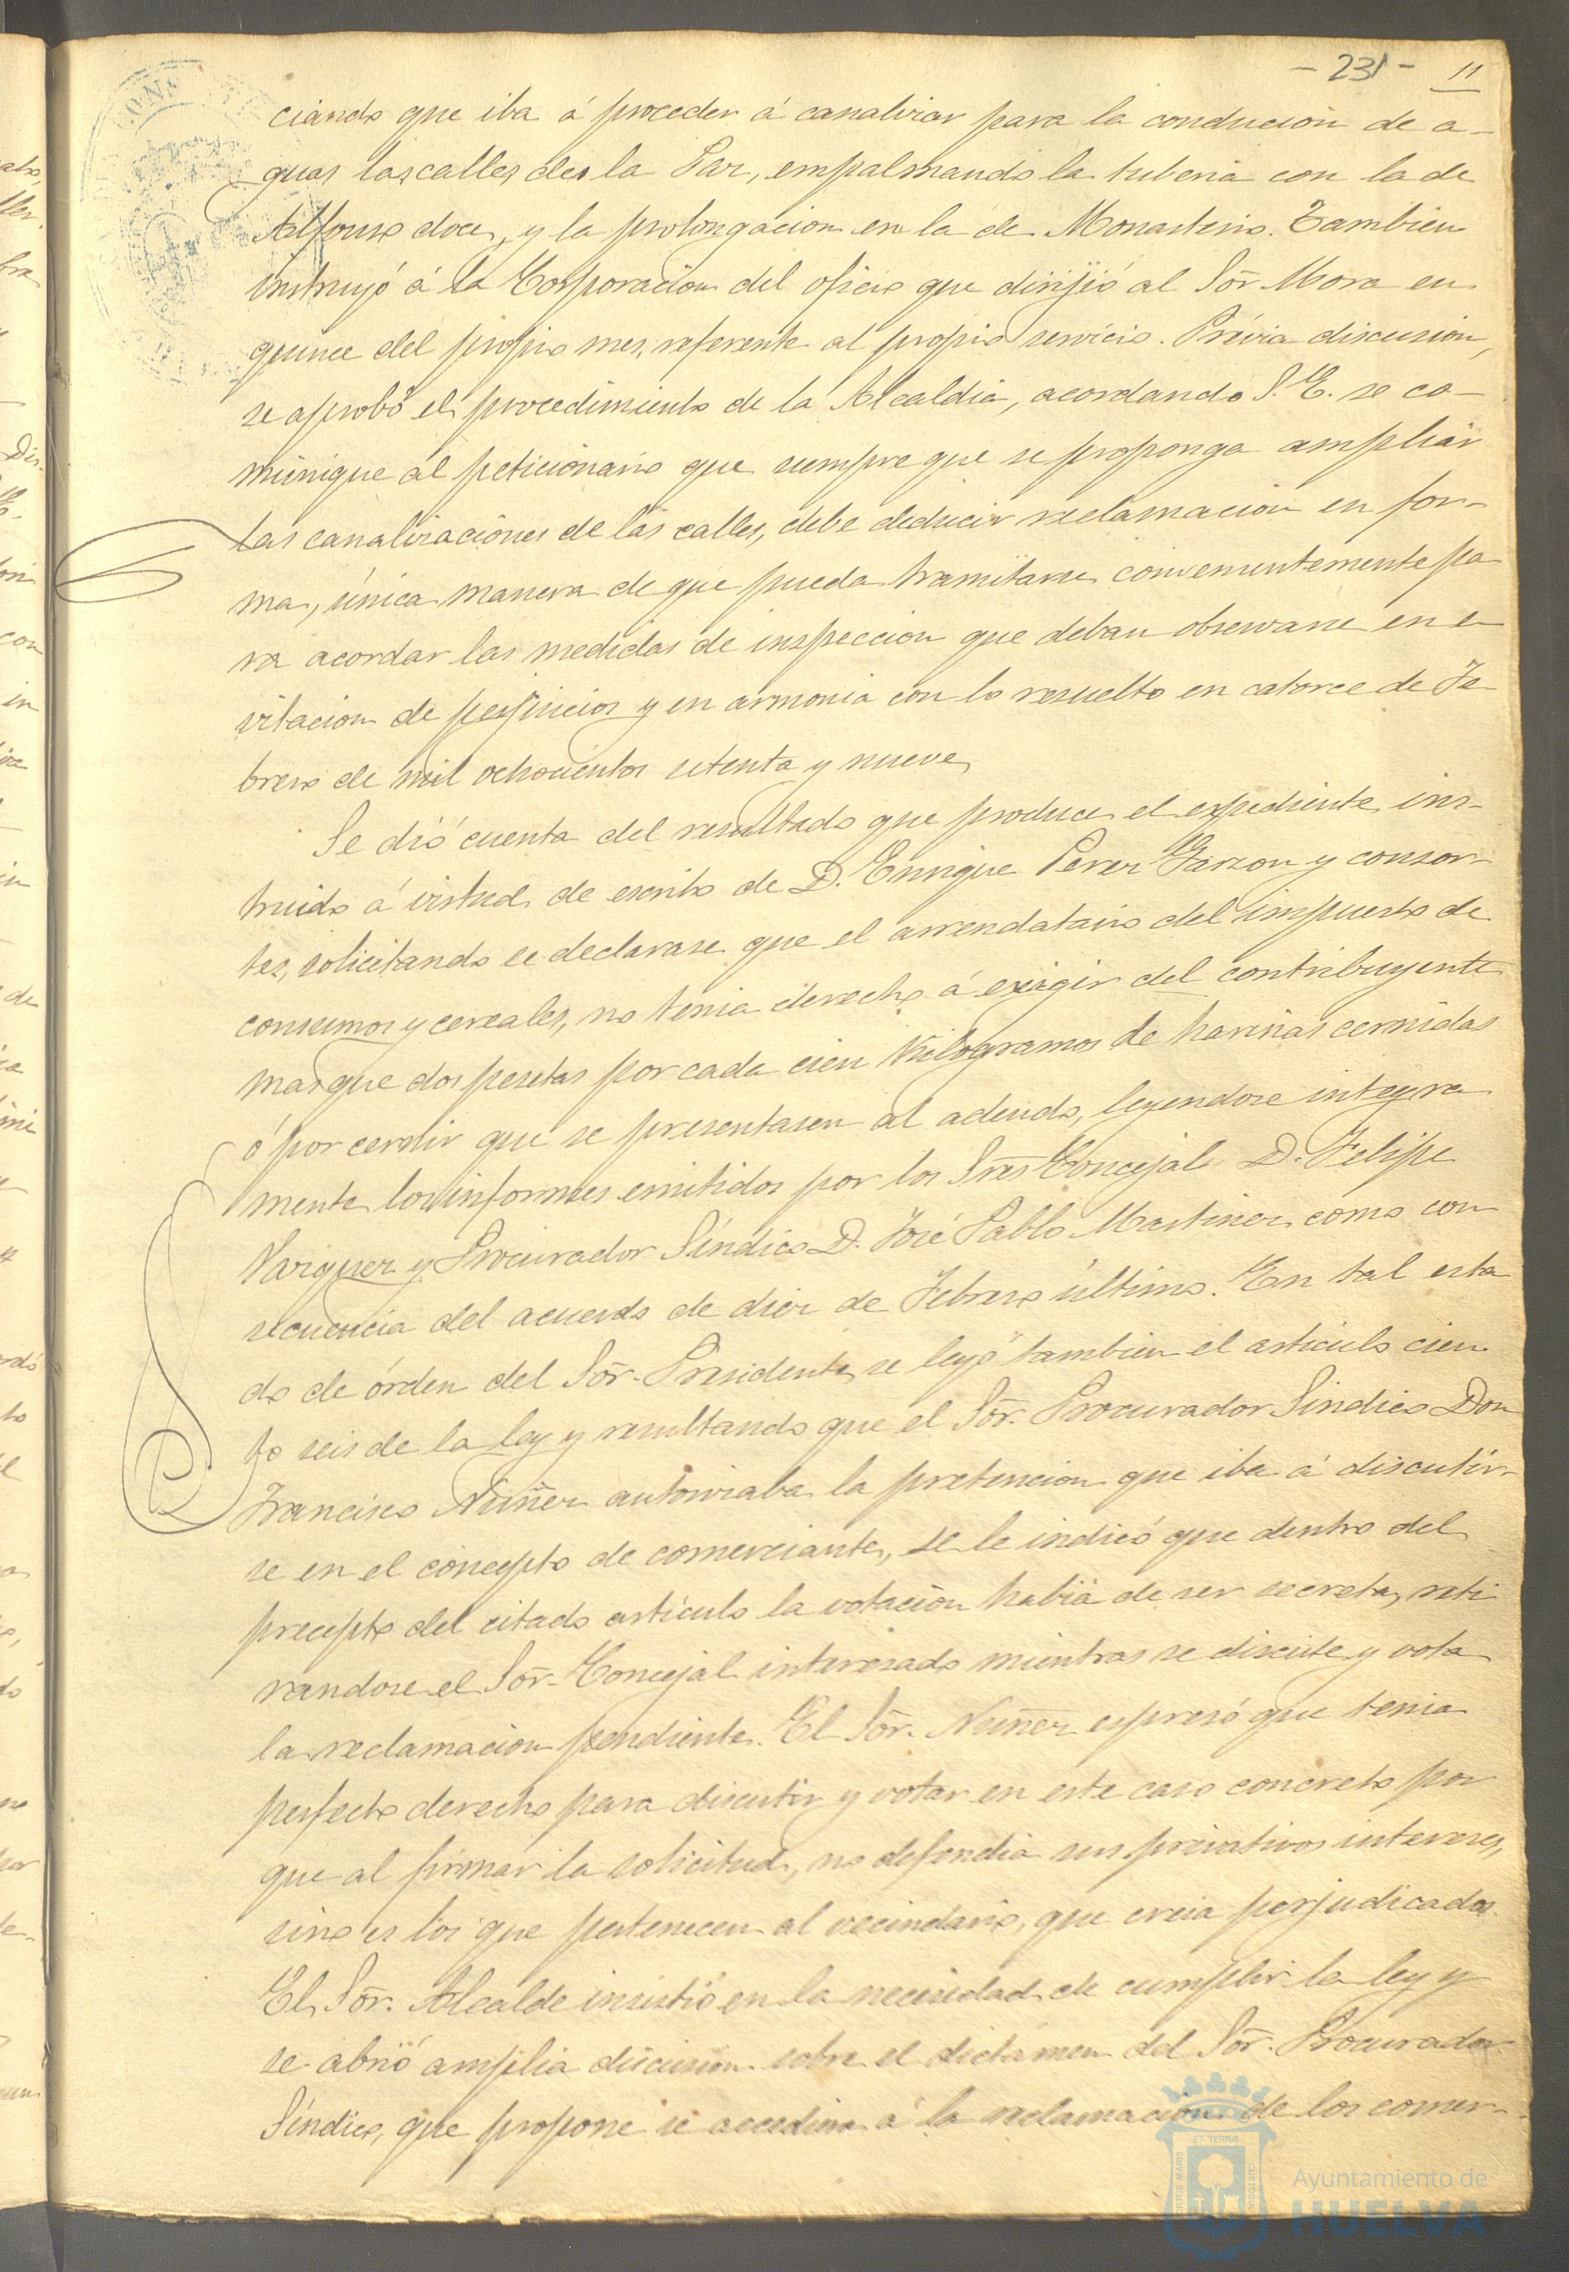 - 231 - 11
ciando que iba á proceder á canalizar para la conducion de a-
guas las calles de la Paz, empalmando la tuberia con la de
Alfonso doce, y la prolongacion en la de Monasterio. Tambien
instruyó á la Corporacion del oficio que dirijió al Sõr. Mora en
quince del propio mes, referente al propio servicio. Prévia discusion,
se aprobó el procedimiento de la Alcaldia, acordando S. E. se co-
munique al peticionario que siempre que se proponga ampliar
las canalizaciones de las calles, debe deducir reclamacion en for-
ma, única manera de que pueda tramitarse convenientemente pa
ra acordar las medidas de inspeccion que deban observarse en e
vitacion de perjuicios y en armonia con lo resuelto en catorce de Fe
brero de mil ochocientos setenta y nueve.
Se dió cuenta del resultado que produce el expediente ins-
truido á virtud de escrito de D. Enrique Perez Garzon y consor-
tes, solicitando se declarase que el arrendatario del impuesto de
consumos y cereales, no tenia derecho á exigir del contribuyente
mas que dos pesetas por cada cien Kilogramos de harinas cernidas
ó por cernir que se presentasen al adeudo, leyendose integra
mente los informes emitidos por los Sres Concejal D. Felipe
Vazquez y Procurador Síndico D. José Pablo Martinez como con
secuencia del acuerdo de diez de Febrero último. En tal esta
do de órden del Sõr. Presidente, se leyó tambien el articulo cien
to seis de la ley y resultando que el Sõr. Procurador Sindico Don
Francisco Nuñez autorizaba la pretencion que iba á discutir-
se en el concepto de comerciante, se le indicó que dentro del
precepto del citado artículo la votacion habia de ser secreta, reti
randose el Sõr. Concejal interesado mientras se discute y vota
la reclamacion pendiente. El Sõr. Nuñez espresó que tenia
perfecto derecho para discutir y votar en este caso concreto por
que al firmar la solicitud, no defendia sus privativos intereses,
sino es los que pertenecen al vecindario, que creia perjudicados.
El Sõr. Alcalde insistió en la necesidad de cumplir la ley y
se abrió amplia discusion sobre el dictamen del Sõr. Procurador
Síndico, que propone se accediera á la reclamacion de los comer-
Ayuntamiento de
HUELVA